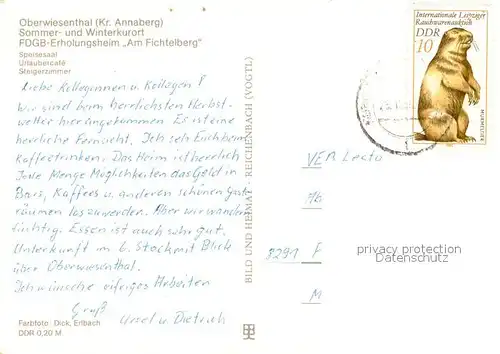 Oberwiesenthal (Kr. Annaberg)
Sommer- und Winterkurort
FDGB-Erholungsheim „Am Fichtelberg"
Speisesaal
Urlaubercafé
Steigerzimmer
Liebe Kolleginnen u. Kollegen!
Wir sind beim herrlichsten Herbst-
wetter hier angekommen. Es ist eine
herrliche Fernsicht. Ich seh Euch beim
Kaffeetrinken. Das Heim ist herrlich
Jede Menge Möglichkeiten das Geld in
Bars, Kaffees u. anderen schönen Gast-
räumen loszuwerden. Aber wir wandern
tüchtig. Essen ist auch sehr gut.
Unterkunft im 6. Stock mit Blick
über Oberwiesenthal.
Ich wünsche eifriges Arbeiten
Gruß
Ursel u. Dietrich
Farbfoto: Dick, Erlbach
DDR 0,20 M
BILD UND HEIMAT REICHENBACH (VOGTL)
Internationale Leipziger
Rauchwarenauktion
DDR
10
MURMELTIER
VEB Lecto
8291
privacy protection
Datenschutz